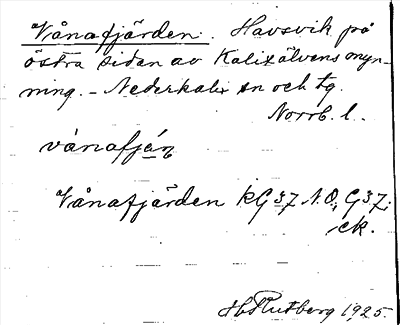 Vånafjärden. Havsvik på
östra sidan av Kalixälvens myn-
ning. - Nederkalix sn och tg.
Norrb. l.
vånafjąṇ
Vånafjärden kG 37 N.O., G 37;
ek.
Hb Rutberg 1925.